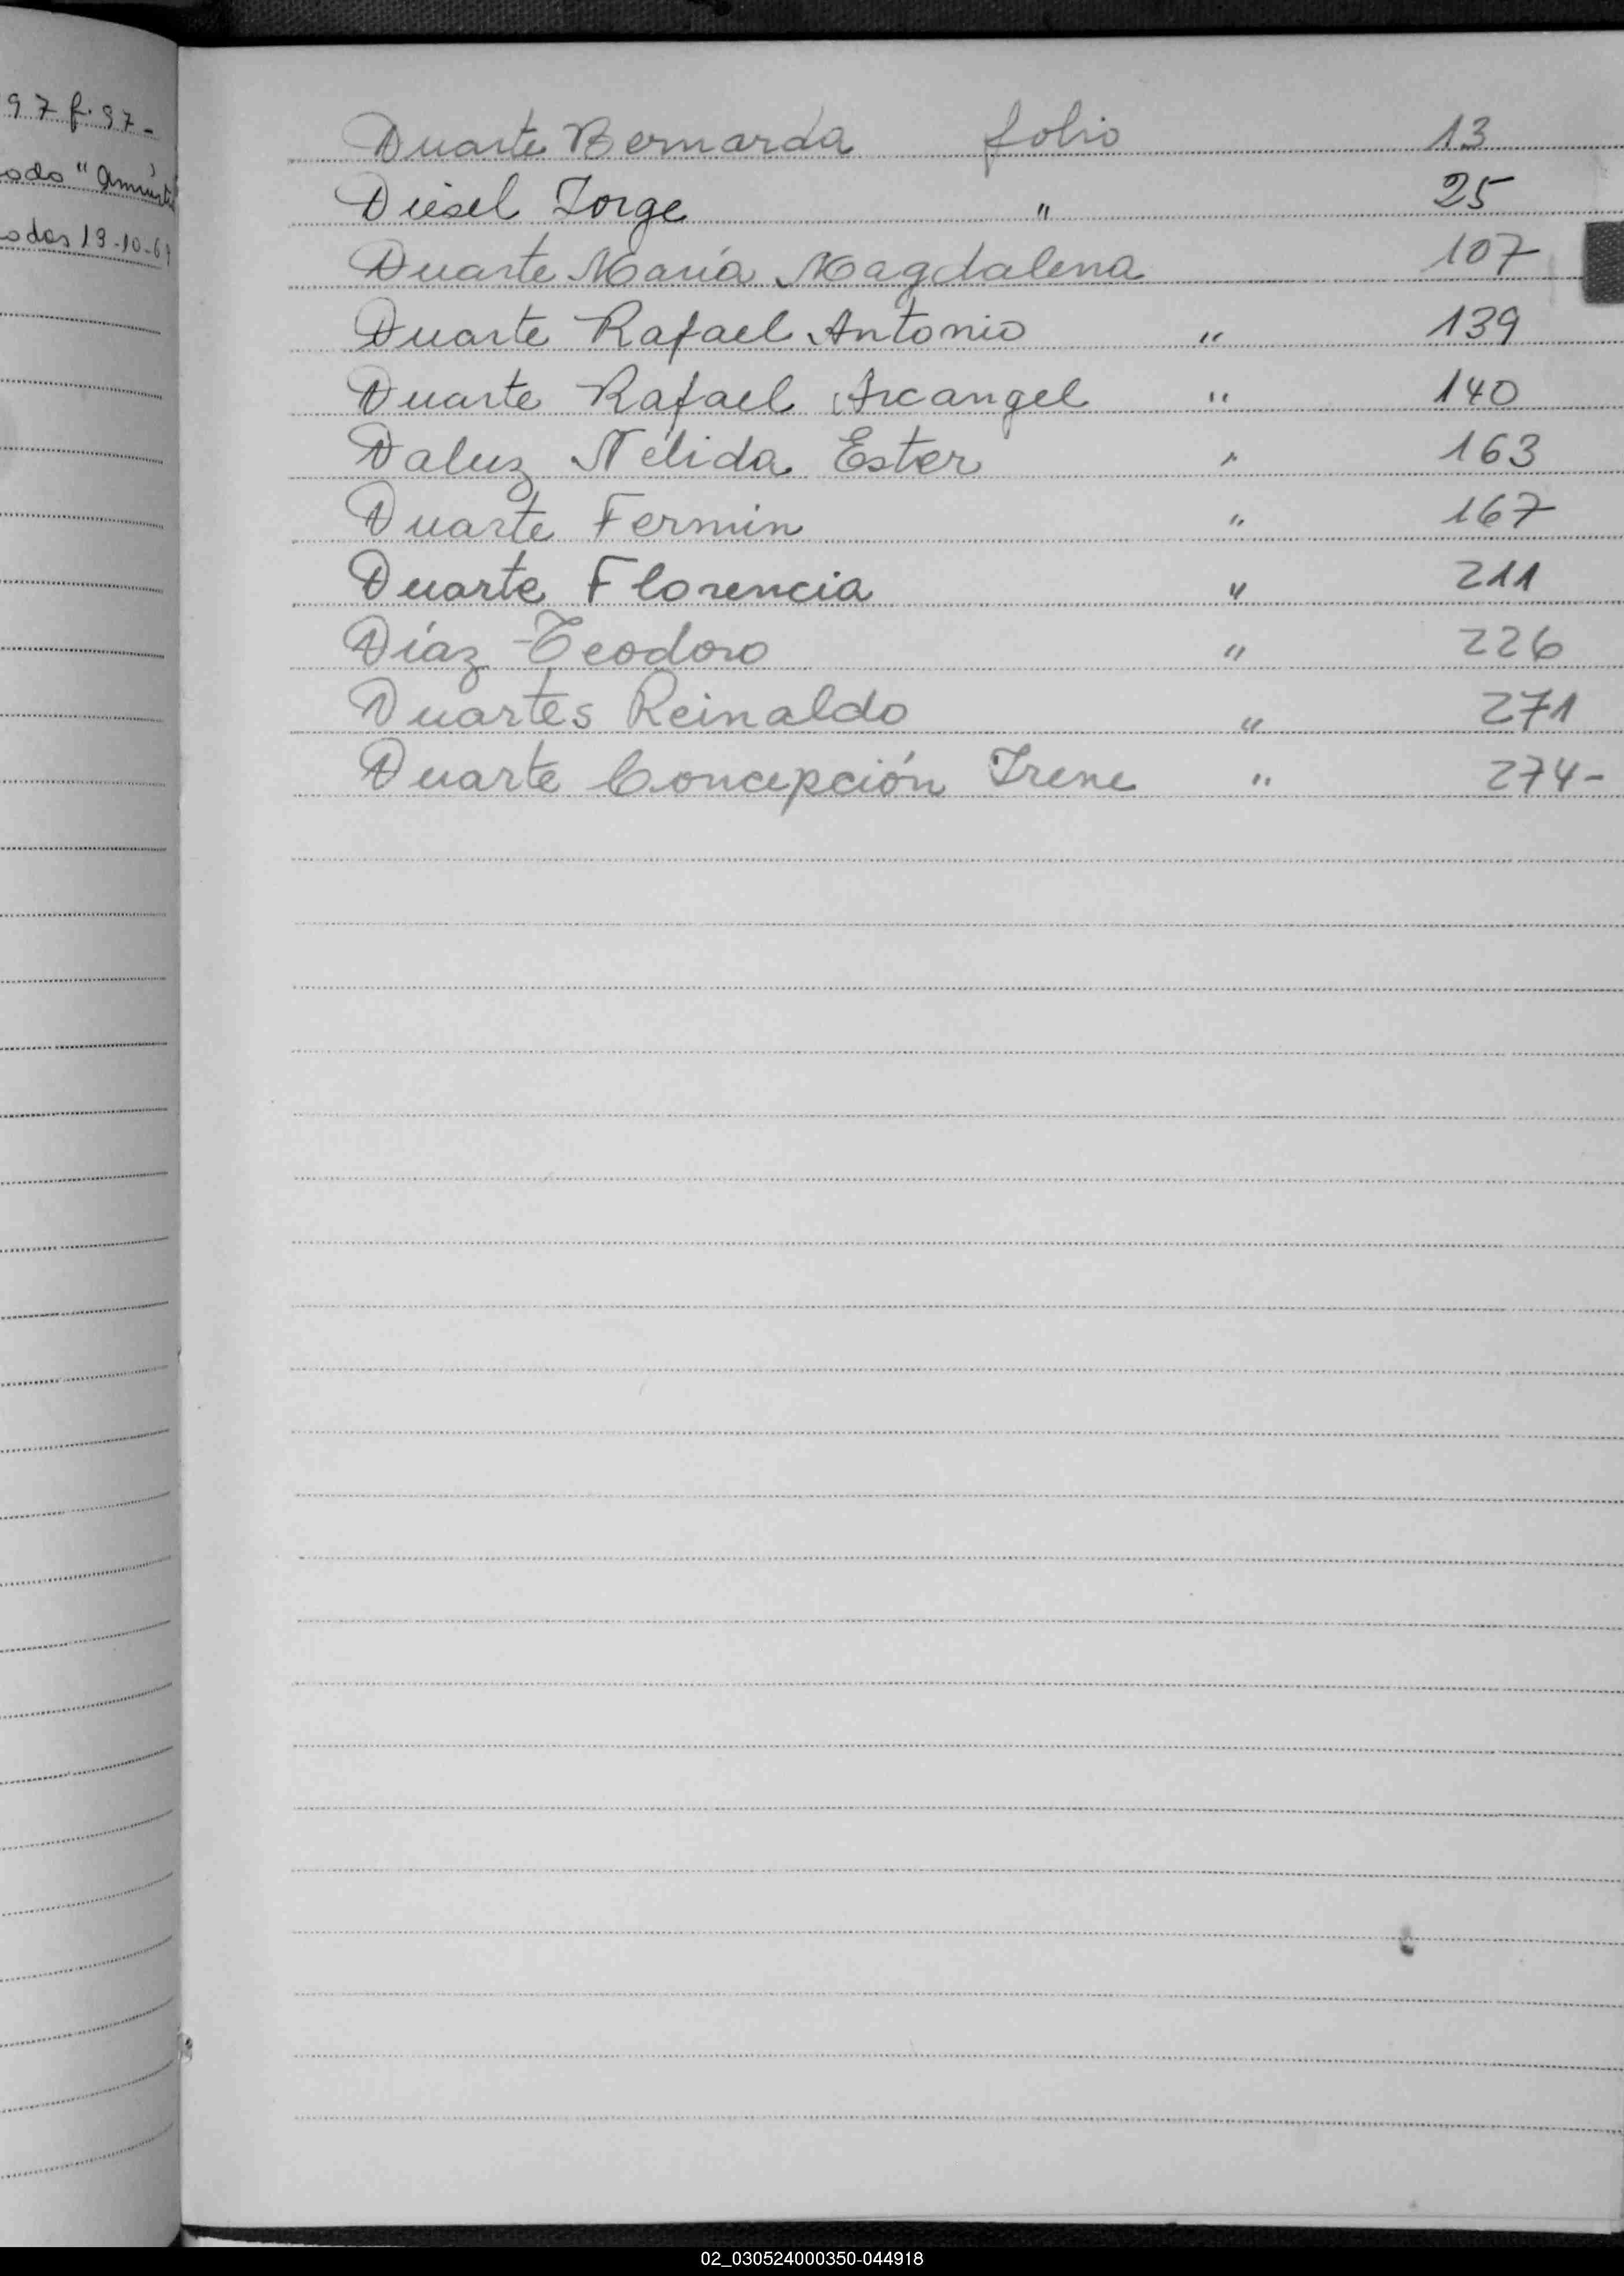 97 f. 97-
19-10-69
Duarte Bernarda folio 13
Diesel Jorge " 25
Duarte María Magdalena 107
Duarte Rafael Antonio " 139
Duarte Rafael Arcangel " 140
Daluz Nélida Ester " 163
Duarte Fermin " 167
Duarte Florencia " 211
Díaz Teodoro " 226
Duartes Reinaldo " 271
Duarte Concepción Irene " 274-
02_030524000350-044918